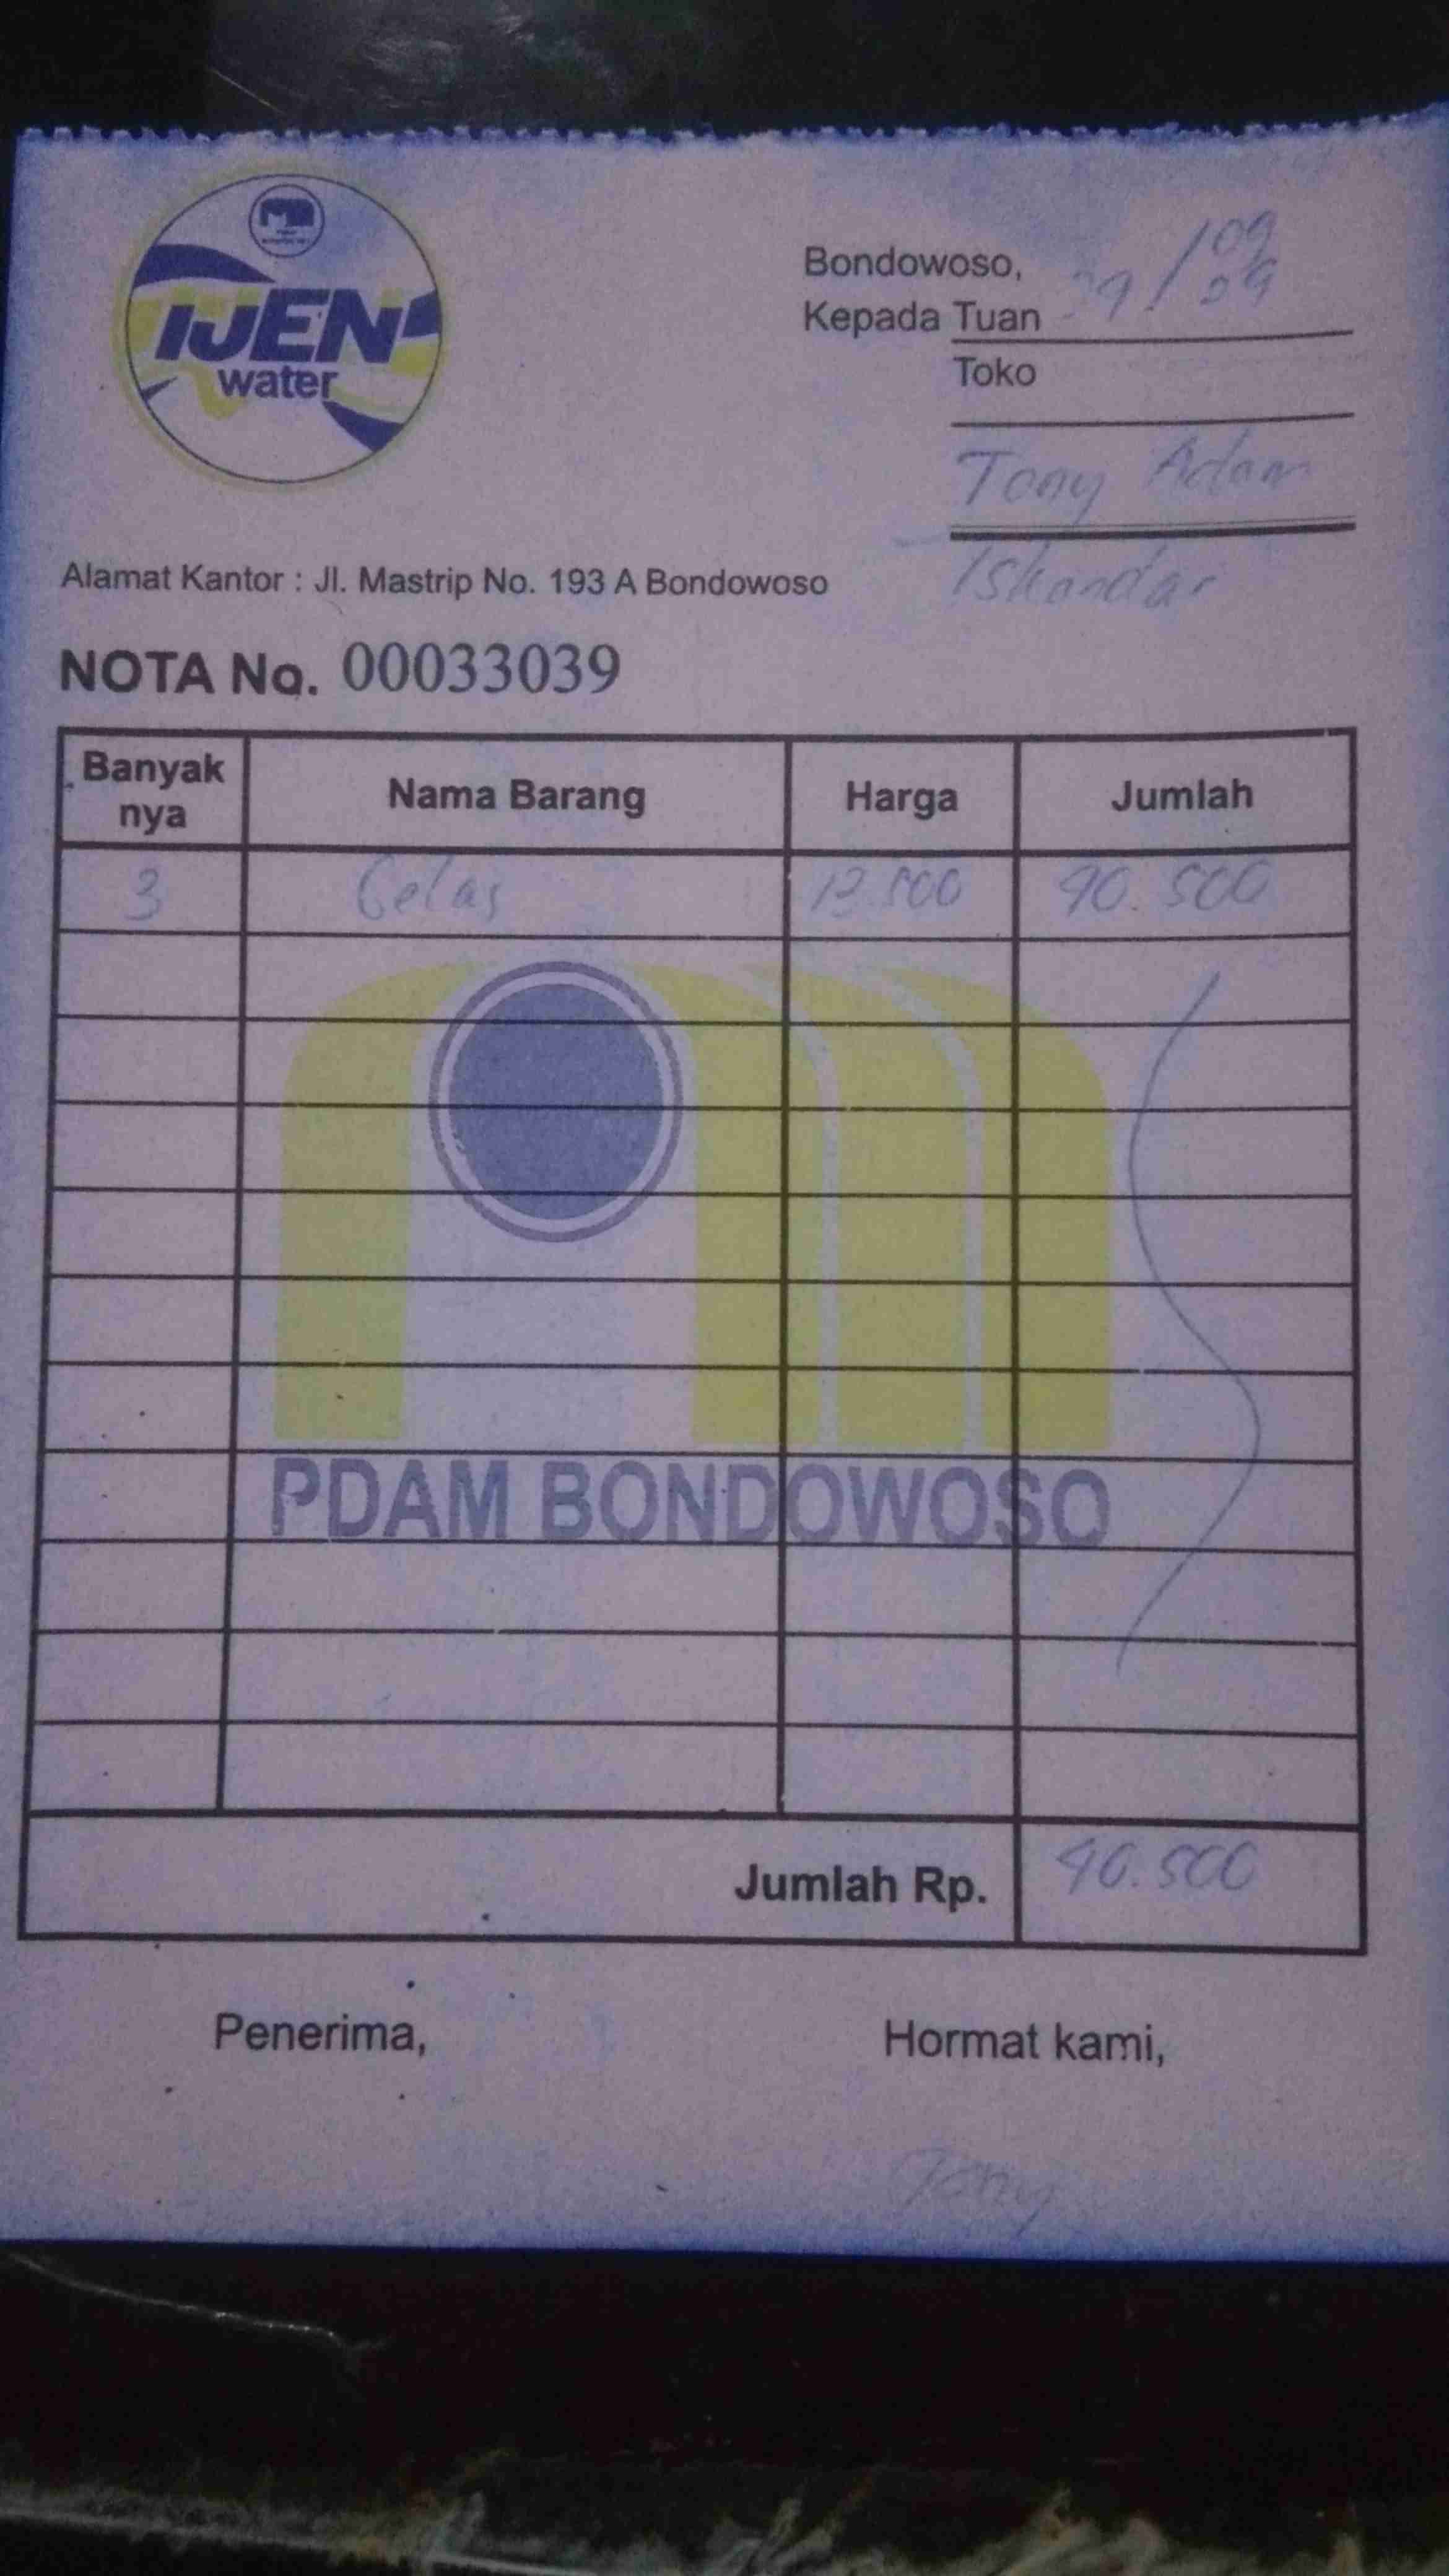 IJEN
water
Bondowoso, 29/09
24
Kepada Tuan
Toko
Tony Adam
Iskandar
Alamat Kantor : Jl. Mastrip No. 193 A Bondowoso
NOTA No. 00033039
Banyak nya Nama Barang Harga Jumlah
3 Gelas 13.500 40.500
PDAM BONDOWOSO
Jumlah Rp. 40.500
Penerima, Hormat kami,
Tony